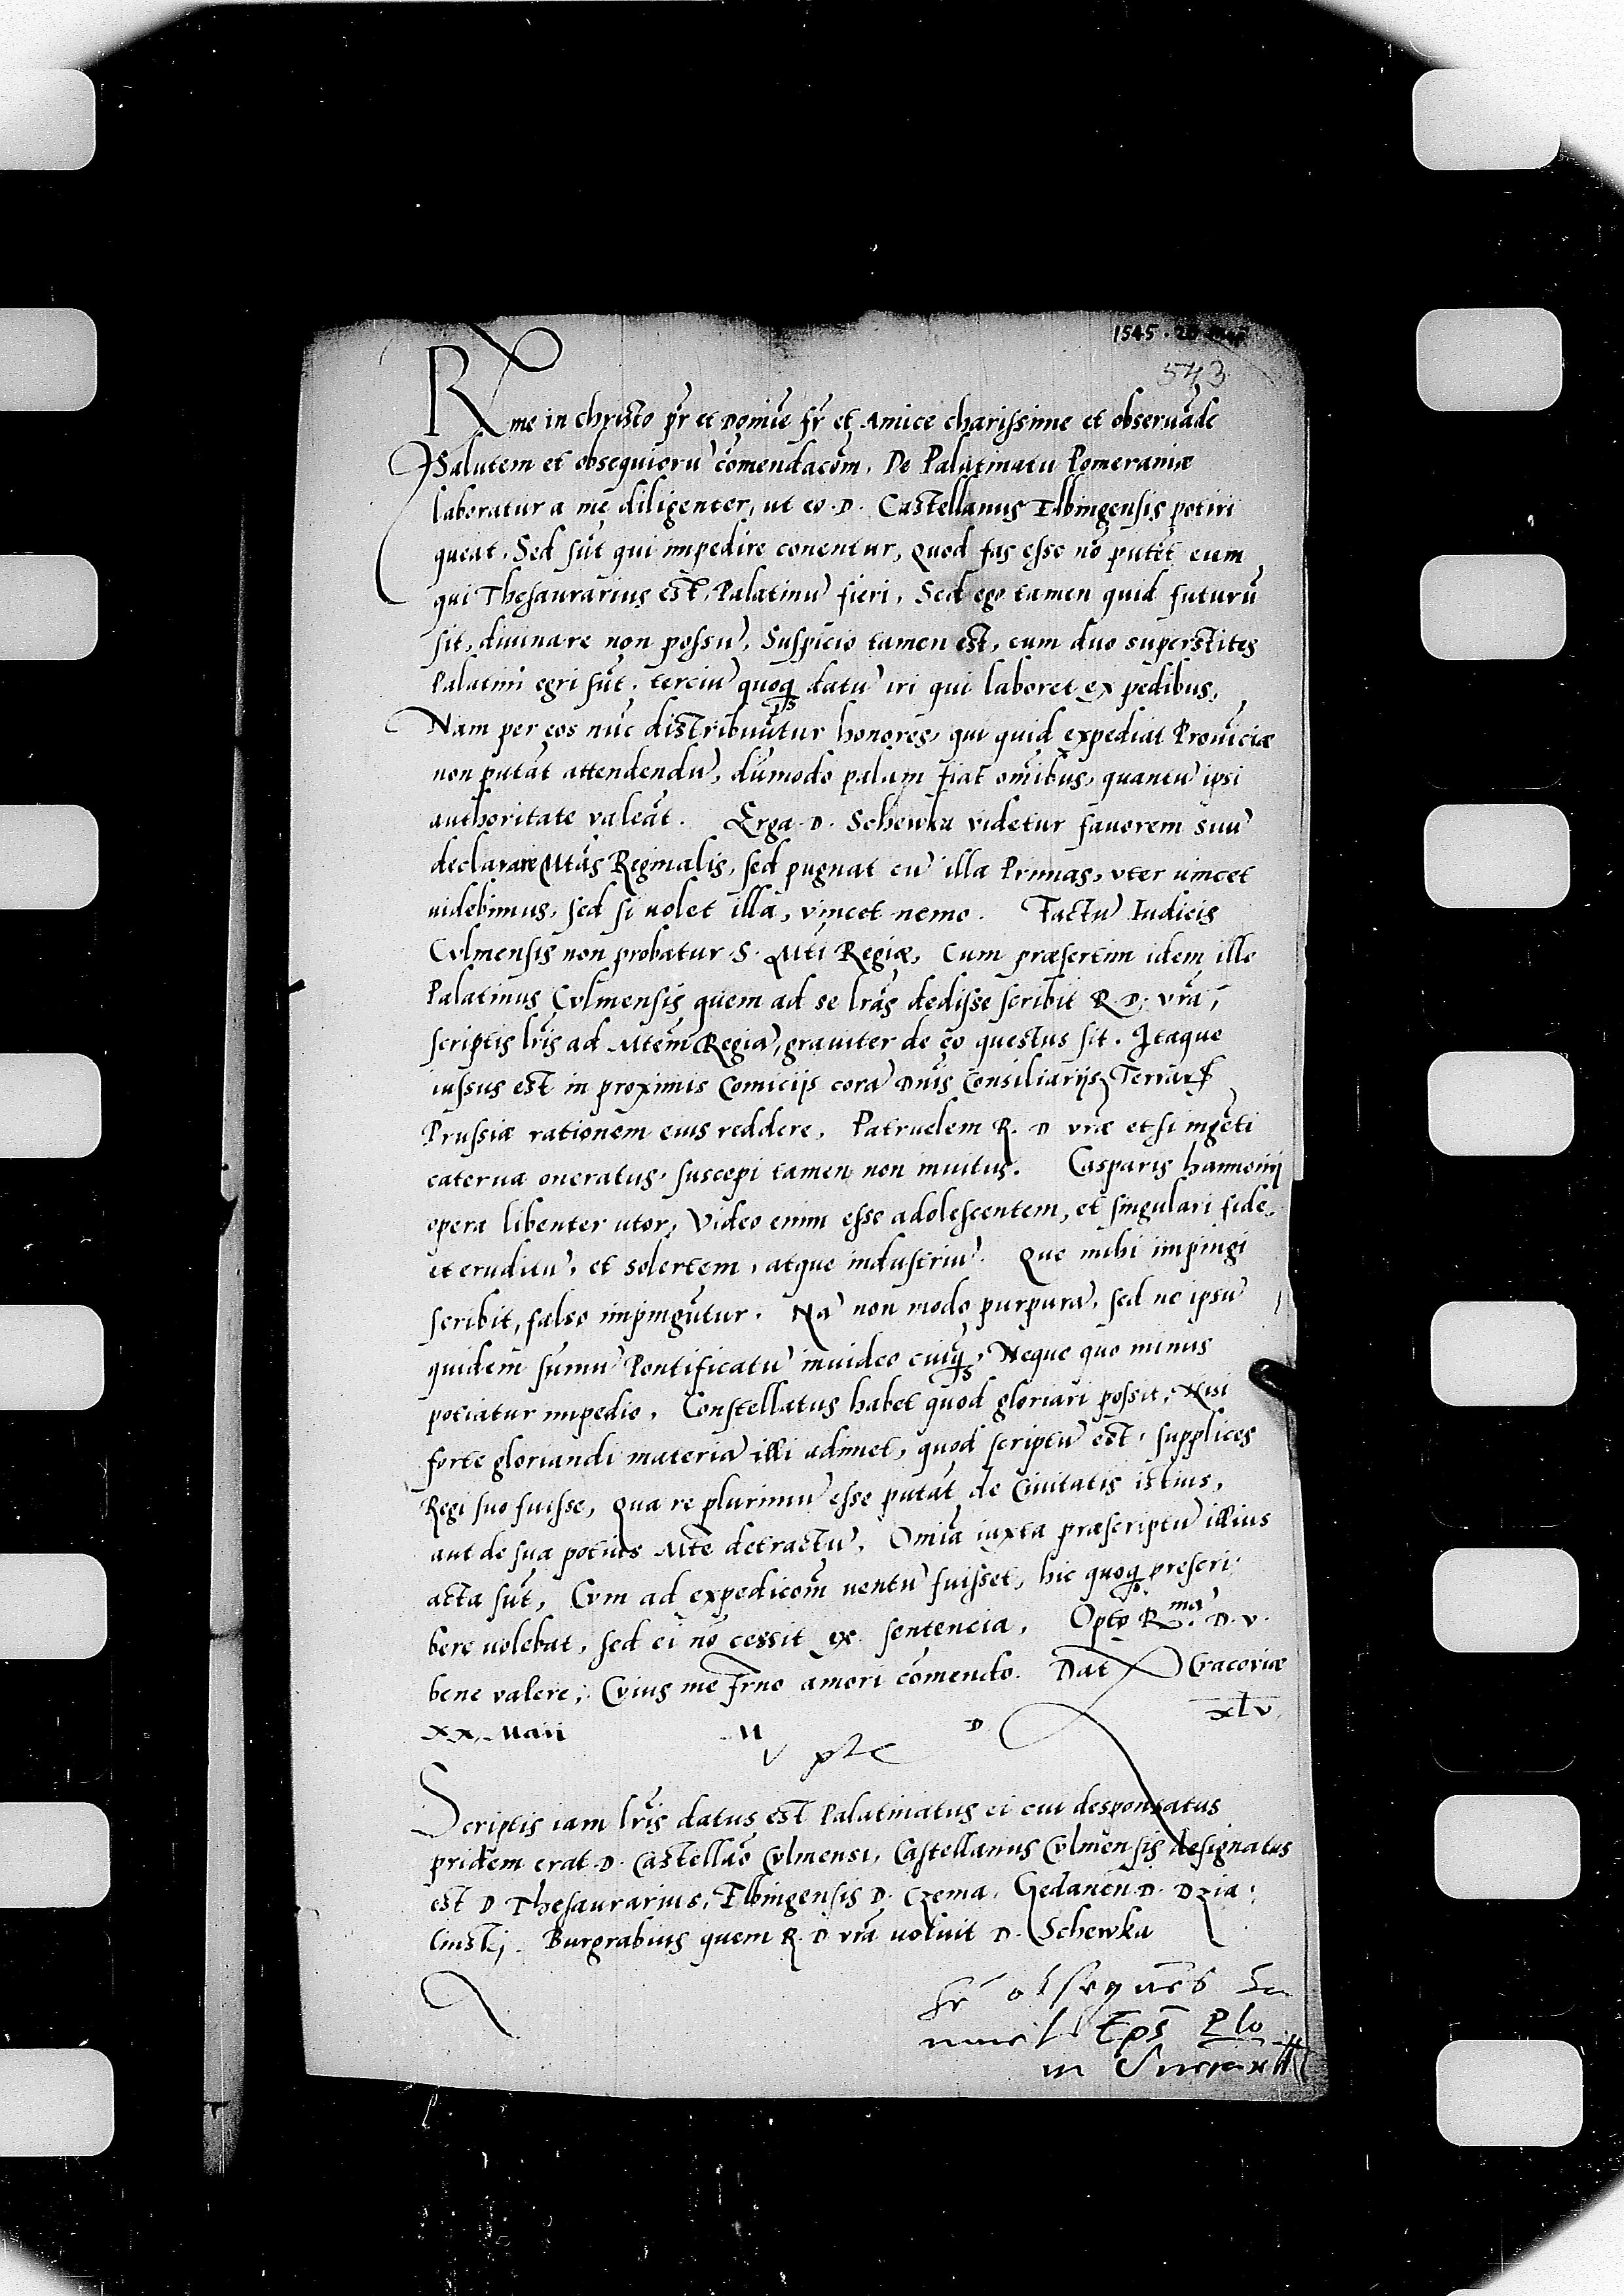 1545 · 20
543
Rme in christo pr̃ et Domie fr̃ et Amice charissime et obseruãde
Salutem et obsequioru᷈ com̃endacom̃. De Palatinatu Pomeraniæ
laboratur a me diligenter, ut eo D. Castellanus Elbingensis potiri
queat. Sed sũt qui impedire conentur, quod fas esse nõ putẽt eum
qui Thesaurarius est, Palatinũ fieri. Sed ego tamen quid futurũ
sit, diuinare non possũ. Suspicio tamen est, cum duo superstites
Palatini egri sũt, terciũ quoq; datũ iri qui laboret ex pedibus,
Nam per eos nũc distribuũtur honores, qui quid expediat Prouĩciæ
non putãt attendendũ, dũmodo palam fiat om̃ibus, quantũ ipsi
authoritate valeãt. Erga D. Schewka videtur fauorem suũ
declarare Mtãs Reginalis, sed pugnat cũ illa Primas, vter uincet
uidebimus, sed si uolet illa, vincet nemo. Factũ Iudicis
Culmensis non probatur S. Mti Regiæ, Cum præsertim idem ille
Palatinus Culmensis quem ad se lrãs dedisse scribit R. D. vrã,
scriptis lrĩs ad Mtẽm Regiã, grauiter de eo questus sit. Itaque
iussus est in proximis Comicijs corã Dnĩs Consiliarijs Terrarꝝ
Prussiæ rationem eius reddere. Patruelem R. D vræ etsi ingẽti
caterua oneratus, suscepi tamen non inuitus. Casparis hannouij
opera libenter utor, Video enim esse adolescentem, et singulari fide,
et eruditũ, et solertem, atque industriũ. Que mihi impingi
scribit, falso impingũtur. Nã non modo purpurã, sed ne ipsũ
quidem sum̃ũ Pontificatũ inuideo cuiq;, Neque quo minus
potiatur impedio. Constellatus habet quod gloriari possit, Nisi
forte gloriandi materiã illi adimet, quod scriptũ est, supplices
Regi suo fuisse, qua re plurimũ esse putãt de Ciuitatis istius,
aut de sua potius Mte detractũ. Om̃ia iuxta præscriptũ illius
acta sũt, Cum ad expedicom̃ uentũ fuisset, hic quoq; prescri-
bere uolebat, sed ei nõ cessit ex sentencia. Opto R.mã D. v.
bene valere, Cuius me frno amori com̃endo. Dat Cracoviæ
xx. Maii M D xlv
Scriptis iam lrĩs datus est Palatinatus ei cui desponsatus
pridem erat D. Castellão Culmensi, Castellanus Culmensis designatus
est D Thesaurarius, Elbingensis D. Czema, Gedanen̄ D. Dzia-
linskj. Burgrabius quem R. D vrã uoluit D. Schewka
Eps̃ Plo